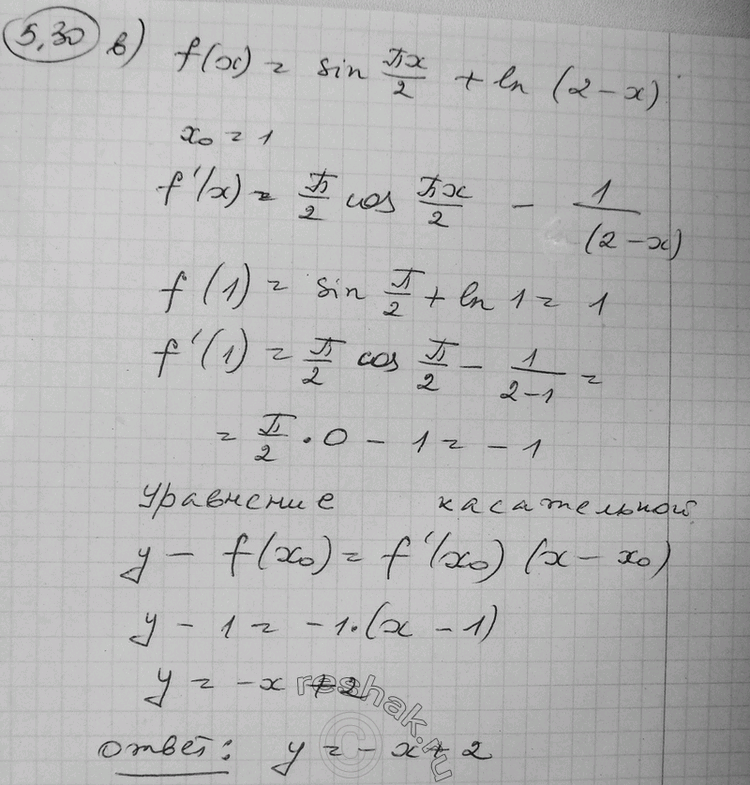 5,30 в) f(x) = sin πx/2 + ln (2-x)
x₀ = 1
f'(x) = π/2 cos πx/2 - 1/(2-x)
f(1) = sin π/2 + ln 1 = 1
f'(1) = π/2 cos π/2 - 1/(2-1) =
= π/2 · 0 - 1 = -1
Уравнение касательной
y - f(x₀) = f'(x₀) (x - x₀)
y - 1 = -1·(x - 1)
y = -x + 2
ответ: y = -x + 2
reshak.ru
©